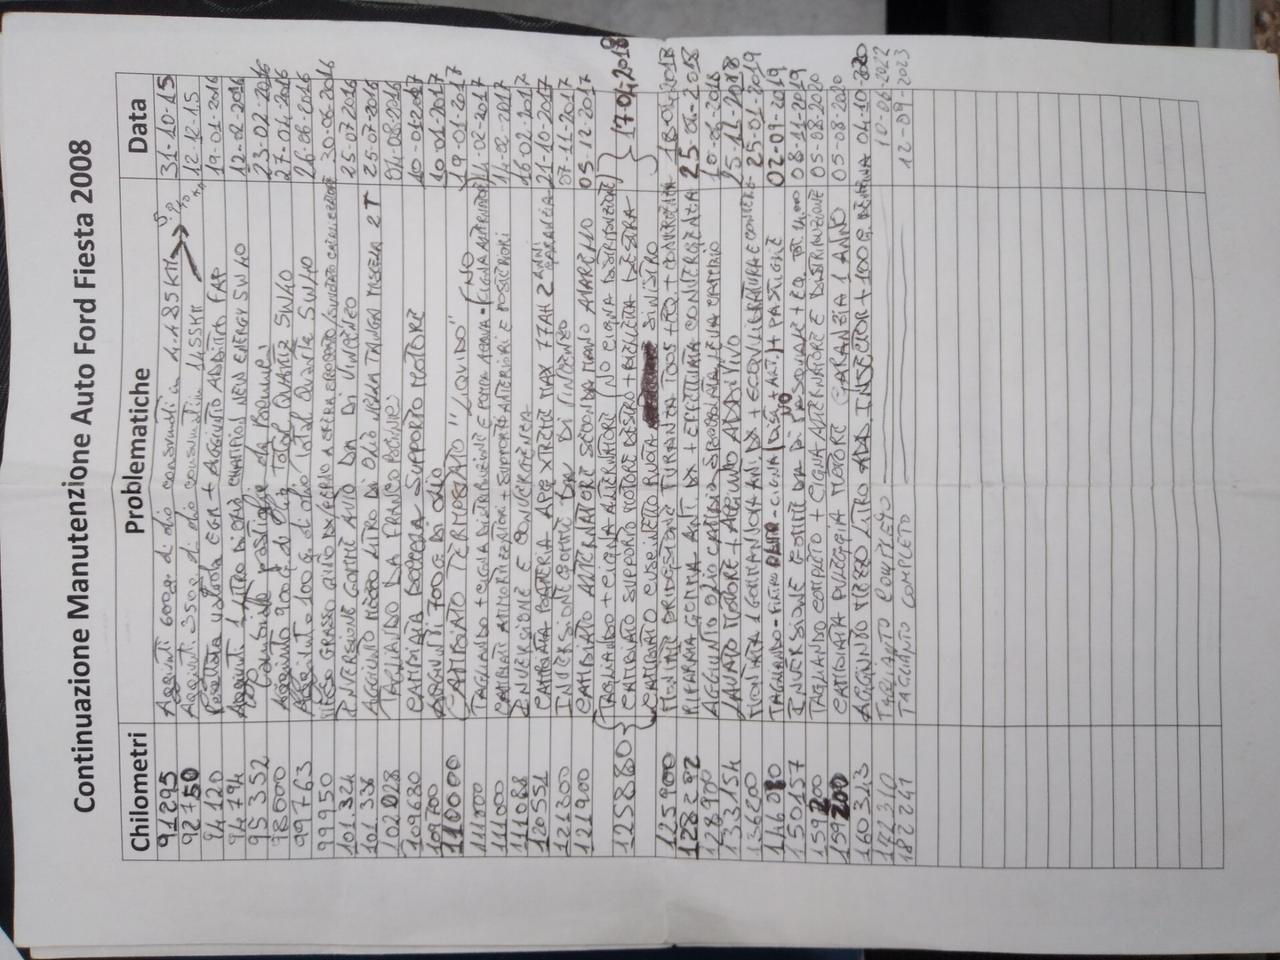 Continuazione Manutenzione Auto Ford Fiesta 2008
Chilometri Problematiche Data
91295 Aggiunti 600gr di olio consumati in 4.485KM 31-10-15
92750 Aggiunti 350gr di olio consumati in 1455KM 12.12.15
94120 valvola EGR + AGGIUNTO ADDITIVO FAP 19-01-2016
94794 Aggiunti 1 LITRO DI OLIO CHAMPION NEW ENERGY 5W40 12-02-2016
95352 Cambiato pastiglie da 23-02-2016
98600 Aggiunto 900g di olio total QUARTZ 5W40 27-04-2016
99763 Aggiunto 100g di olio total Quartz 5W40 26-06-2016
99950 MESSO GRASSO 30-06-2016
101.324 INVERSIONE GOMME AUTO DA DI VINCENZO 25-07-2016
101.336 AGGIUNTO MEZZO LITRO DI OLIO NELLA TANICA MISCELA 2T 25-07-2016
102028 TAGLIANDO DA FRANCO 04-08-2016
109680 CAMBIATA SUPPORTO MOTORE 10-01-2017
109700 AGGIUNTI 700g DI OLIO 10-01-2017
110000 CAMBIATO TERMOSTATO "LIQUIDO" 19-01-2017
111000 TAGLIANDO + CIGNA DISTRIBUZIONE E POMPA ACQUA - (NO CIGNA ALTERNATORE 14-02-2017
111000 CAMBIATI AMMORTIZZATORI + SUPPORTI ANTERIORI E POSTERIORI 14-02-2017
111088 INVERSIONE E CONVERGENZA 16-02-2017
120551 CAMBIATA BATTERIA XTREME MAX 77AH 2 ANNI GARANZIA 21-10-2017
121300 INVERSIONE GOMME DA DI VINCENZO 07-11-2017
121900 CAMBIATO ALTERNATORE SECONDA MANO 05-12-2017
125880 TAGLIANDO + CIGNA ALTERNATORE (NO CIGNA DISTRIBUZIONE) 17-04-2018
CAMBIATO SUPPORTO MOTORE DESTRO + DESTRA
CAMBIATO CUSCINETTO RUOTA SINISTRO
125900 BRIDGESTONE TURANZA T005 + EQ + 18-04-2018
128202 GOMMA ANT DX + EFFETTUATA CONVERGENZA
128900 AGGIUNTO OLIO CAMBIO
133.154 LAVATO MOTORE + AGGIUNTO ADDITIVO
136200 MONTATA 1 GOMMA NUOVA ANT. DX + EQUILIBRATURA E 25-01-2019
146080 TAGLIANDO - + PASTIGLIE 02-09-2019
150157 INVERSIONE GOMME DA DI PASQUALE + EQ. 08-11-2019
159200 TAGLIANDO COMPLETO + CIGNA ALTERNATORE E DISTRIBUZIONE 05-08-2020
159200 CAMBIATA PULEGGIA MOTORE GARANZIA 1 ANNO 05-08-2020
160313 AGGIUNTO MEZZO LITRO ADD. INJECTOR + 100g 04-10-2020
172310 TAGLIANDO COMPLETO 10-06-2022
182241 TAGLIANDO COMPLETO 12-09-2023